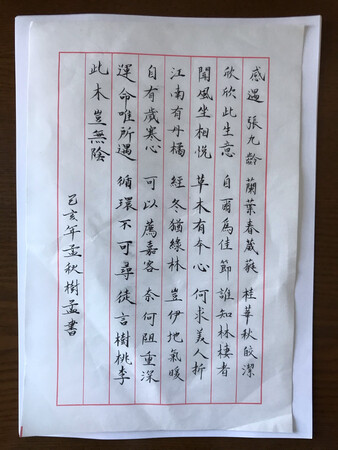 感遇 張九齡 蘭葉春葳蕤 桂華秋皎潔
欣欣此生意 自爾為佳節 誰知林棲者
聞風坐相悅 草木有本心 何求美人折
江南有丹橘 經冬猶綠林 豈伊地氣暖
自有歲寒心 可以薦嘉客 奈何阻重深
運命唯所遇 循環不可尋 徒言樹桃李
此木豈無陰
己亥年孟秋樹孟書